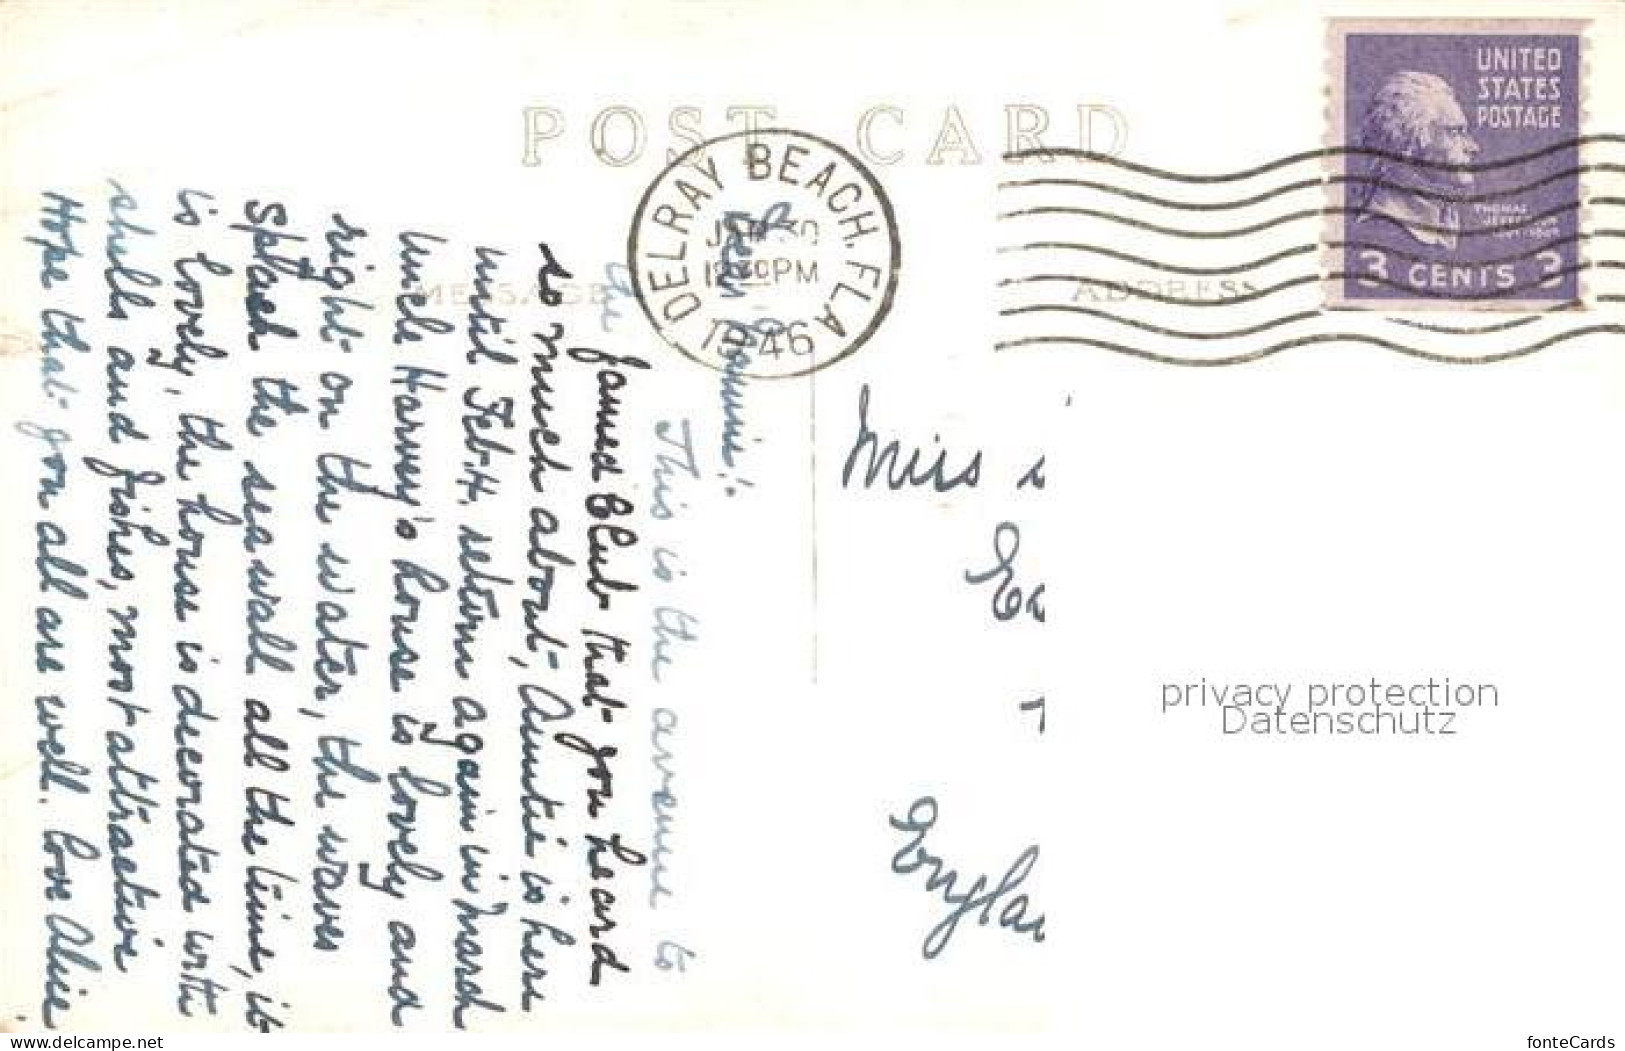 POST CARD
DELRAY BEACH, FLA.
JAN 30
12 30 PM
1946
UNITED
STATES
POSTAGE
THOMAS
JEFFERSON
3 CENTS 3
MESSAGE
ADDRESS
This is the avenue to
the famed Club that you heard
so much about, Auntie is here
until Feb. return again in March
Uncle Harvey's house is lovely and
right on the water, the waves
splash the sea wall all the time, it
is lovely, the house is decorated with
shells and fishes, most attractive
Hope that you all are well. Love Alice
Miss
Englan
privacy protection
Datenschutz
www.delcampe.net
fonteCards